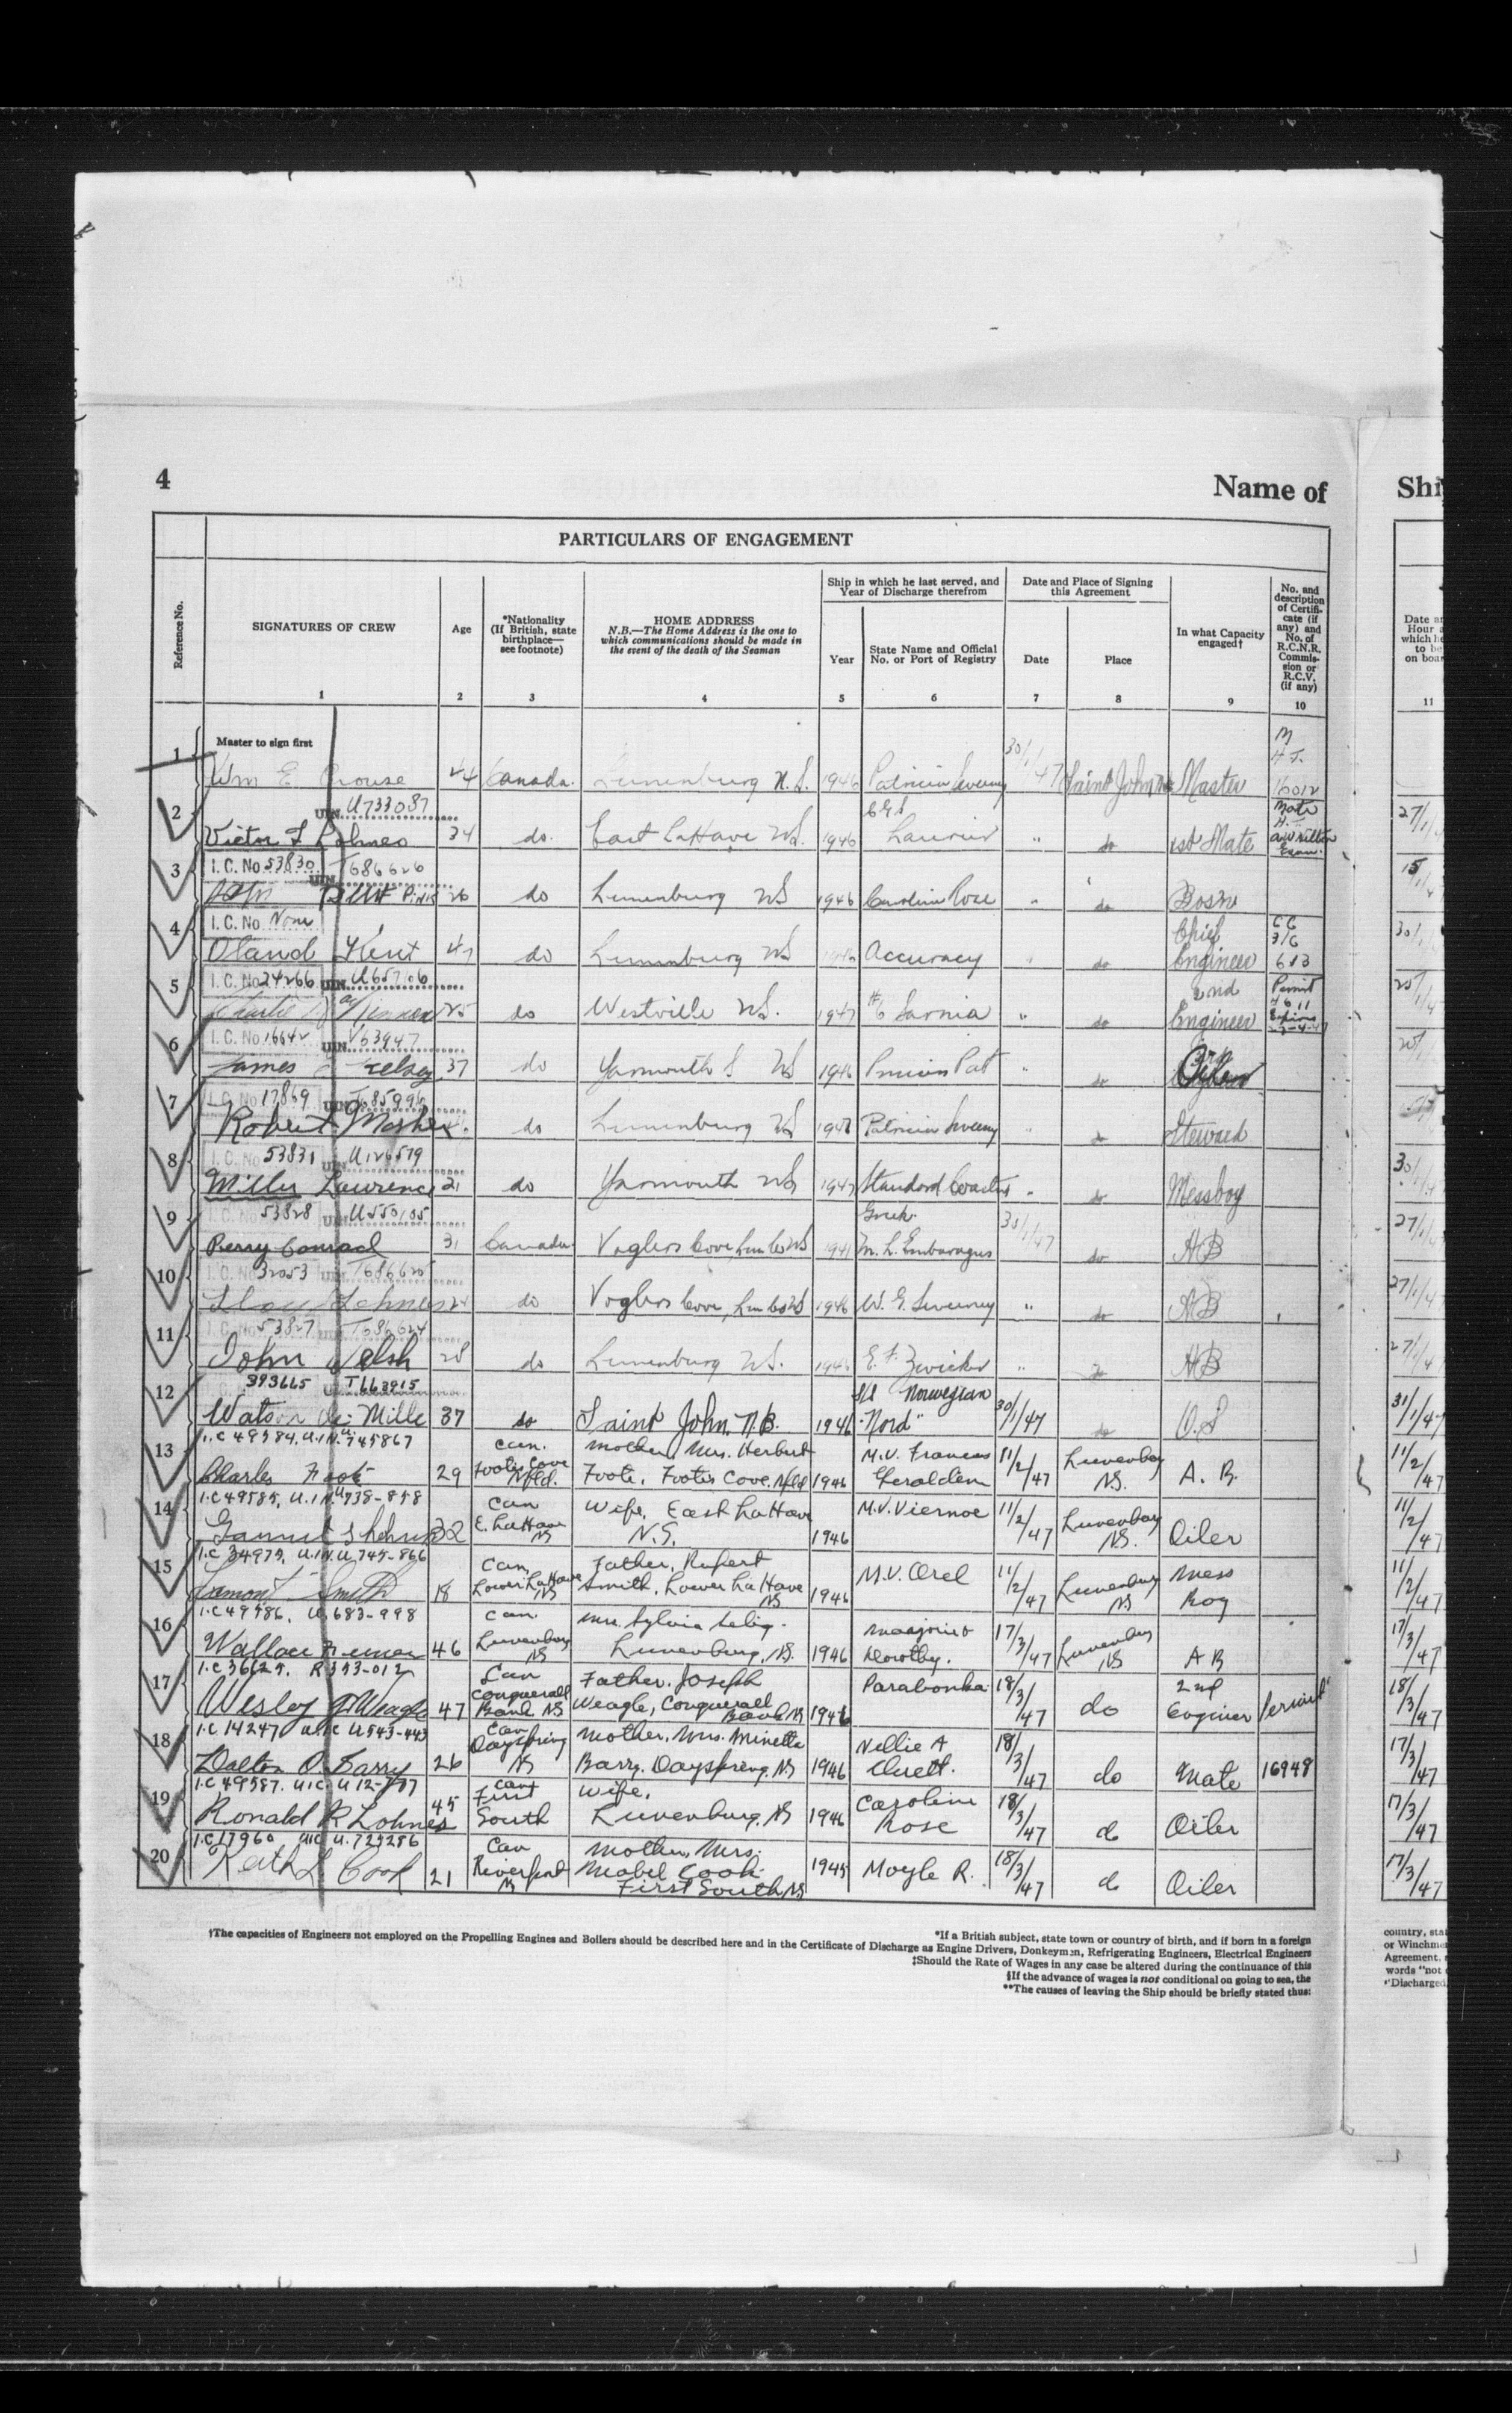 4
Name of
Shi
PARTICULARS OF ENGAGEMENT
Reference No.
SIGNATURES OF CREW
1
Age
2
*Nationality
(If British, state
birthplace—
see footnote)
3
HOME ADDRESS
N.B.—The Home Address is the one to
which communications should be made in
the event of the death of the Seaman
4
Ship in which he last served, and
Year of Discharge therefrom
Year
5
State Name and Official
No. or Port of Registry
6
Date and Place of Signing
this Agreement
Date
7
Place
8
In what Capacity
engaged†
9
No. and
description
of Certifi-
cate (if
any) and
No. of
R.C.N.R.
Commis-
sion or
R.C.V.
(if any)
10
11
Master to sign first
1 Wm E 44 Canada. Lunenburg N.S. 1946 Patricia Sweeny 30/1/47 Saint John Master 16012
UIN U733087
2 Victor L Lohnes 34 do. East LaHave N.S. 1946 CGS Laurier " do 1st Mate Mate
I.C. No 53830 UIN T686626
3 26 do Lunenburg NS 1946 Caroline Rose " do Bosn
I.C. No None
4 Oland Kent 47 do Lunenburg NS Accuracy do Chief Engineer
I.C. No 24266 UIN U657106
5 Charlie 25 do Westville N.S. 1947 Sarnia " do 2nd Engineer Permit
I.C. No 16642 UIN V63947
6 James Kelsey 37 do Yarmouth NS 1946 do
I.C. No 17869 UIN
7 Robert Mosher do Lunenburg NS Patricia Sweeny do Steward
I.C. No 53831 UIN U126579
8 Miller Lawrence 21 do Yarmouth NS 1947 Standard Coaster do Messboy
I.C. No 53828 UIN U550105
9 Perry Conrad 31 Canada Voglers Cove, Lun Co NS 1941 Greek M. L. Embaragus do AB
I.C. No 32053 UIN T686625
10 Lloyd Lohnes 24 do Voglers Cove, Lun Co NS 1946 W. G. Sweeney " do AB
I.C. No 53827 T686624
11 John Walsh 28 do Lunenburg N.S. 1946 E. F. Zwicker " do AB
393665 T663915
12 Watson 37 do Saint John, N.B. 1946 S/S Norwegian "Nord" 30/1/47 do O.S
I.C 49584, U.I.N. U745867
13 Charles Foote 29 Can. Footes Cove Nfld. Mother, Mrs. Herbert Foote, Footes Cove. Nfld 1946 M.V. Frances Geralden 11/2/47 Lunenburg NS. A. B.
I.C 49585, U.I.N. U738-858
14 32 Can E. LaHave NS Wife, East LaHave N.S. 1946 M.V. Viernoe 11/2/47 Lunenburg NS. Oiler
I.C 34975, U.I.N. U 745-866
15 Lamont Smith 18 Can. Lower LaHave NS Father, Rupert Smith, Lower LaHave NS 1946 M.V. Orel 11/2/47 Lunenburg NS Mess Boy
I.C 49586, U 683-998
16 Wallace 46 Can Lunenburg NS Mrs. Sylvia Selig. Lunenburg, NS. 1946 Marjorie & Dorothy. 17/3/47 Lunenburg NS A B
I.C 36625. R 393-012
17 Wesley G Weagle 47 Can Conquerall Bank NS Father. Joseph Weagle, Conquerall Bank NS 1946 Parabonka 18/3/47 do 2nd Engineer Permit
I.C 14247 U.I.C U543-443
18 Dalton O Barry 26 Can Dayspring NS Mother, Mrs. Minetta Barry. Dayspring. NS 1946 Nellie A Cluett. 18/3/47 do Mate 16948
I.C 49587. U.I.C. U 12-
19 Ronald R Lohnes 45 Can First South Wife, Lunenburg, NS 1946 Caroline Rose 18/3/47 do Oiler
I.C 17960 UIC U. 725286
20 Keith L Cook 21 Can Riverport NS Mother, Mrs. Mabel Cook. First South NS 1945 Moyle R. 18/3/47 do Oiler
*If a British subject, state town or country of birth, and if born in a foreign
†The capacities of Engineers not employed on the Propelling Engines and Boilers should be described here and in the Certificate of Discharge as Engine Drivers, Donkeymen, Refrigerating Engineers, Electrical Engineers
‡Should the Rate of Wages in any case be altered during the continuance of this
§If the advance of wages is not conditional on going to sea, the
**The causes of leaving the Ship should be briefly stated thus: